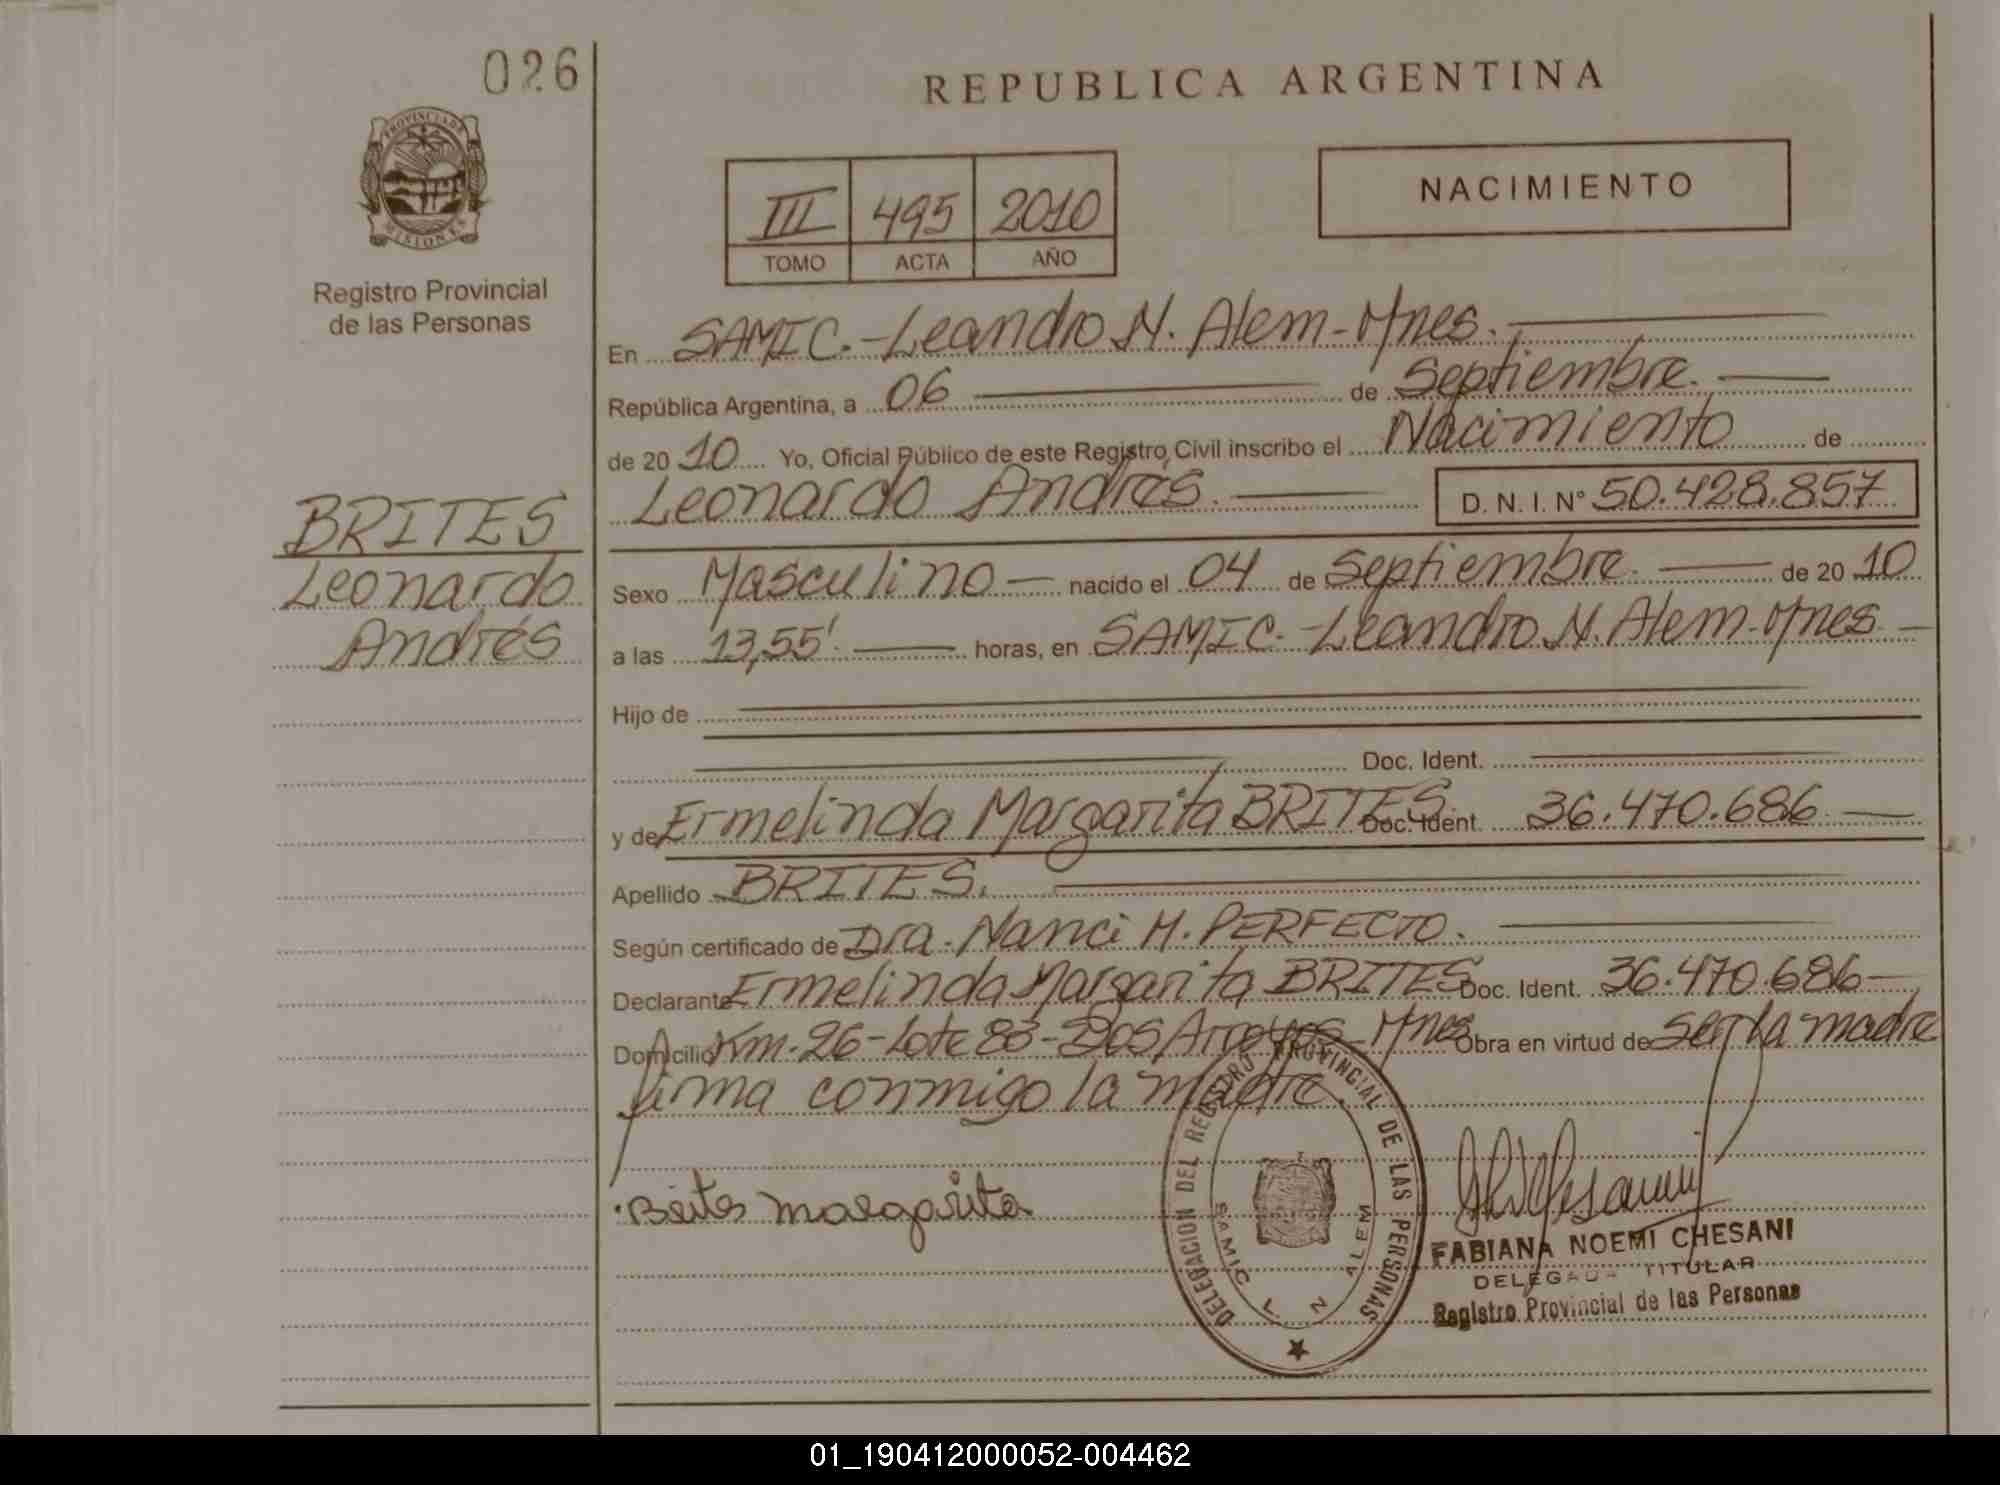 026
REPUBLICA ARGENTINA
PROVINCIA DE MISIONES
Registro Provincial
de las Personas
III 495 2010
TOMO ACTA AÑO
NACIMIENTO
En SAMIC.-Leandro N. Alem-Mnes.
República Argentina, a 06 de Septiembre.
de 2010 Yo, Oficial Público de este Registro Civil inscribo el Nacimiento de
Leonardo Andrés. D. N. I. N° 50.428.857
BRITES
Leonardo
Andrés
Sexo Masculino nacido el 04 de Septiembre. de 2010
a las 13,55'. horas, en SAMIC.-Leandro N. Alem-Mnes
Hijo de
Doc. Ident.
y de Ermelinda Margarita BRITES. Doc. Ident. 36.470.686
Apellido BRITES.
Según certificado de Dra. Nanci M. PERFECTO.
Declarante Ermelinda Margarita BRITES Doc. Ident. 36.470.686
Domicilio Km. 26-Lote 83-Dos Arroyos-Mnes Obra en virtud de ser la madre
firma conmigo la madre.
Brites margarita
DELEGACION DEL REGISTRO PROVINCIAL DE LAS PERSONAS
SAMIC L. N ALEM
FABIANA NOEMI CHESANI
DELEGADA TITULAR
Registro Provincial de las Personas
01_190412000052-004462